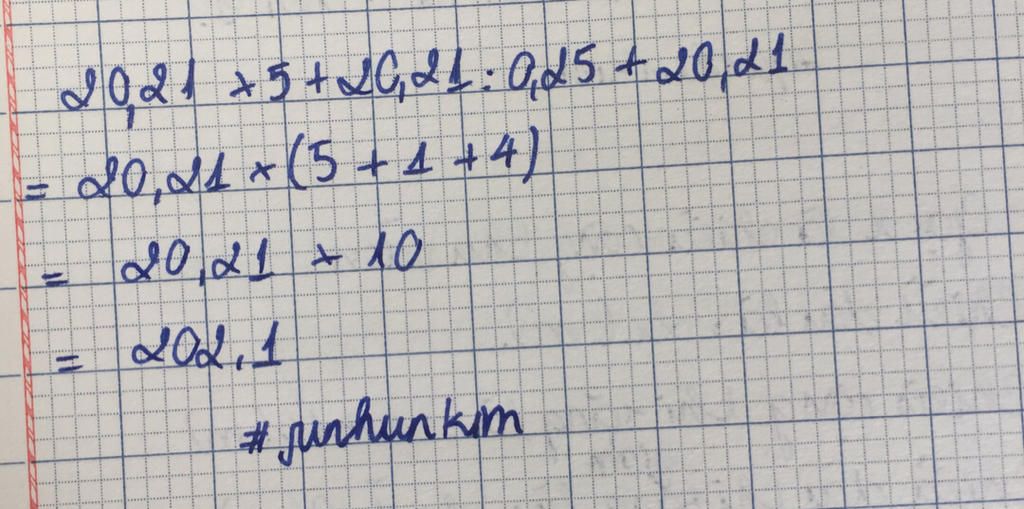 20,21 × 5 + 20,21 : 0,25 + 20,21
= 20,21 × (5 + 1 + 4)
= 20,21 × 10
= 202.1
# junhunkm